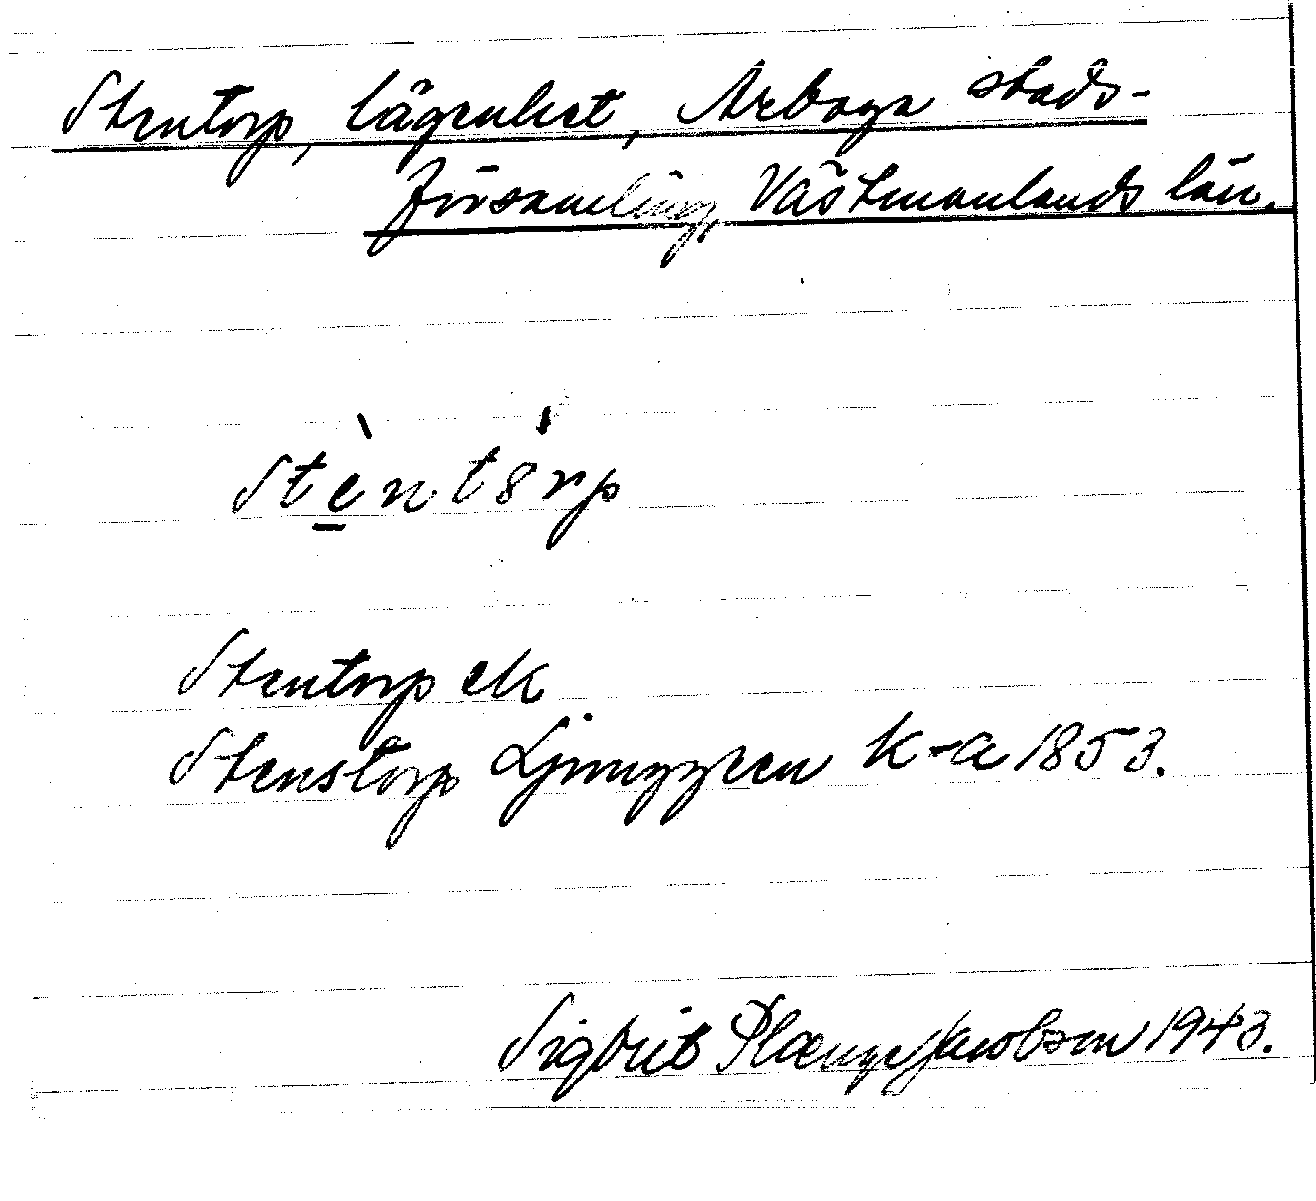 Stentorp, lägenhet, Arboga stads-
församling, Västmanlands län.
stè̱nt8́rp
Stentorp ek
Stenstorp Ljunggren k-a 1853.
Sigbrit Plænge Jacobson 1943.